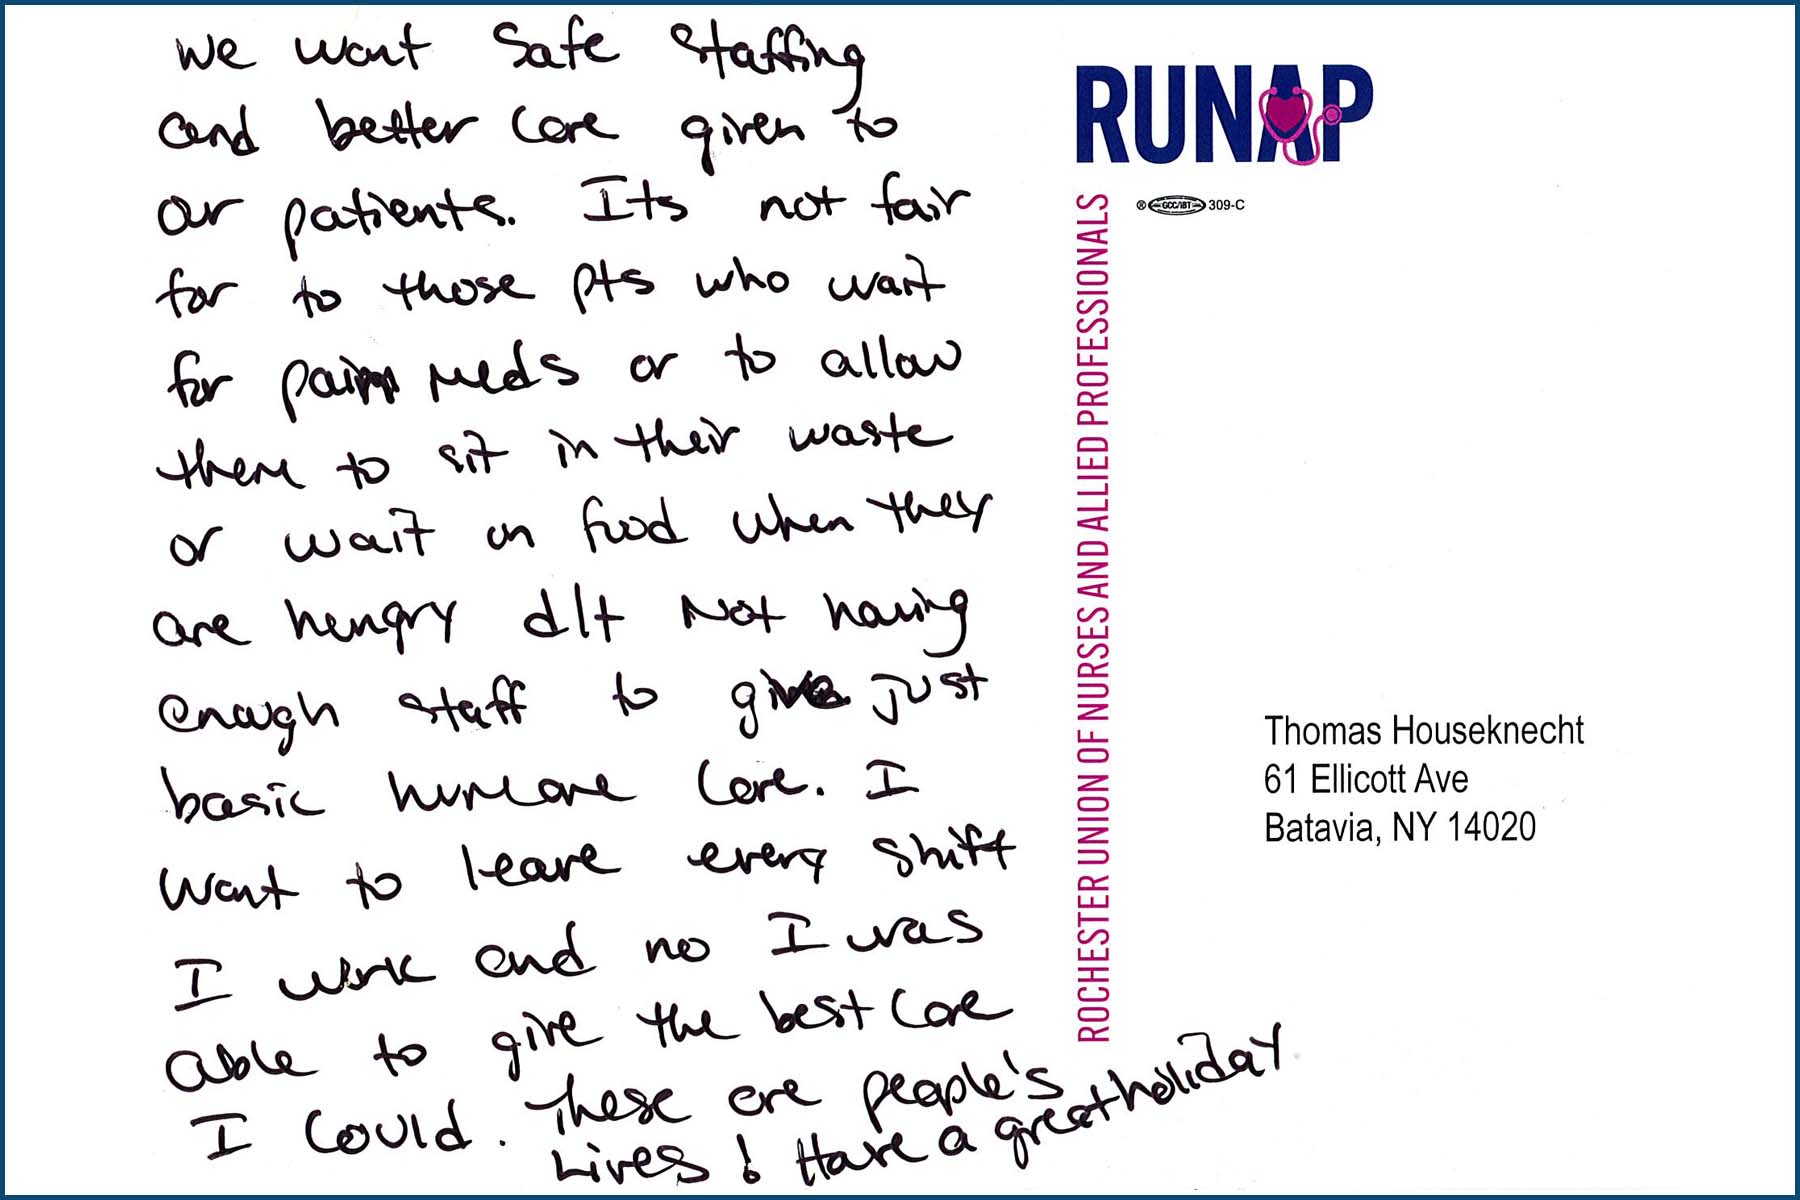 We want safe staffing
and better care given to
our patients. Its not fair
for to those pts who wait
for pain meds or to allow
them to sit in their waste
or wait on food when they
are hungry d/t Not having
enough staff to give just
basic humane care. I
want to leave every shift
I work and no I was
able to give the best care
I could. These are people's
Lives! Have a great holiday
RUNAP
® GCC/IBT 309-C
ROCHESTER UNION OF NURSES AND ALLIED PROFESSIONALS
Thomas Houseknecht
61 Ellicott Ave
Batavia, NY 14020